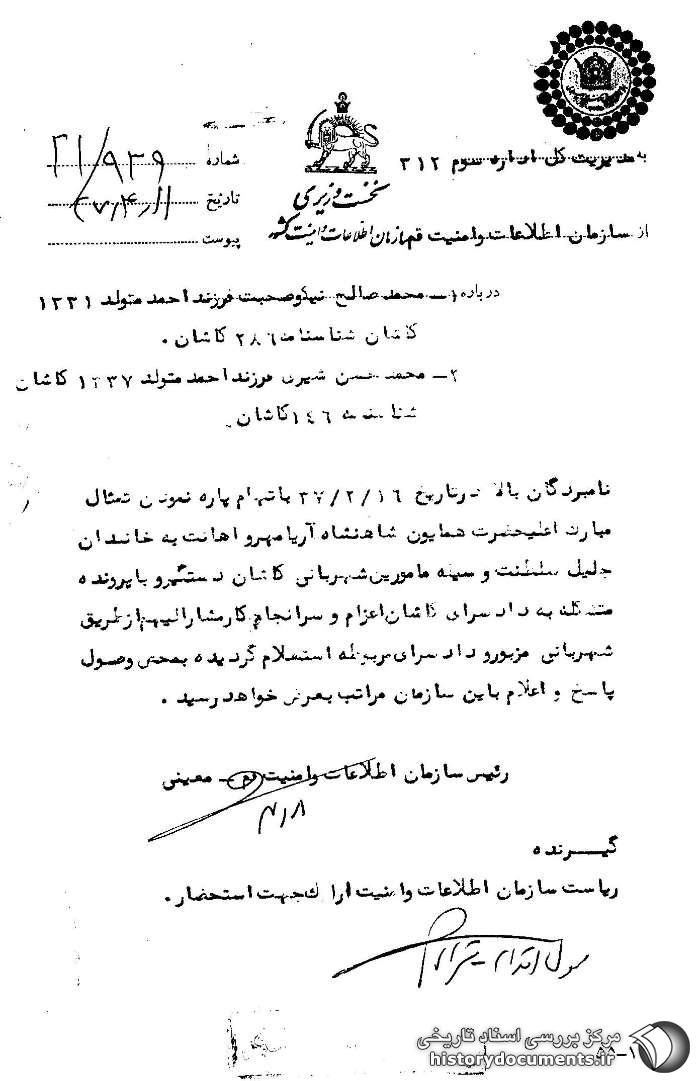 به مدیریت کل اداره سوم ۳۱۲
شماره ۲۱/۹۳۹
نخست وزیری
تاریخ
از سازمان اطلاعات و امنیت قم
سازمان اطلاعات و امنیت کشور
پیوست
درباره ۱ـ محمد صالح نیکوصحبت فرزند احمد متولد ۱۳۳۱
کاشان شناسنامه ۲۸۶ کاشان .
۲ـ محمد حسن شیری فرزند احمد متولد ۱۳۳۷ کاشان
شناسنامه ۱۴۶ کاشان .
نامبردگان بالا در تاریخ ۳۷/۲/۱۶ باتهام پاره نمودن تمثال
مبارک اعلیحضرت همایون شاهنشاه آریامهر و اهانت به خاندان
جلیل سلطنت وسیله مامورین شهربانی کاشان دستگیر و با پرونده
متشکله به دادسرای کاشان اعزام و سرانجام کار مشارالیهم از طریق
شهربانی مزبور و دادسرای مربوطه استعلام گردیده بمحض وصول
پاسخ و اعلام باین سازمان مراتب بعرض خواهد رسید .
رئیس سازمان اطلاعات و امنیت قم ـ معینی
گیرنده
ریاست سازمان اطلاعات و امنیت اراک جهت استحضار .
مرکز بررسی اسناد تاریخی
historydocuments.ir